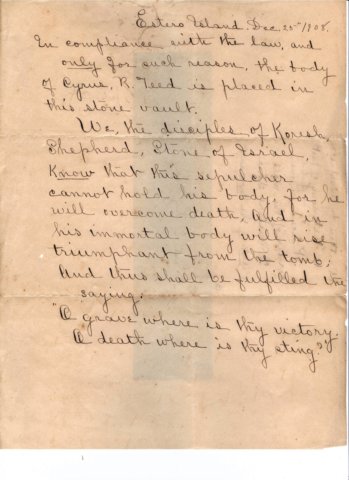 Estero Island. Dec. 25th 1908.
In compliance with the law, and
only for such reason, the body
of Cyrus, R. Teed is placed in
this stone vault.
We, the disciples of Koresh,
Shepherd, Stone of Israel,
Know that this sepulcher
cannot hold his body, for he
will overcome death, and in
his immortal body will rise
triumphant from the tomb;
And thus shall be fulfilled the
saying:
"O grave where is thy victory
O death where is thy sting?"